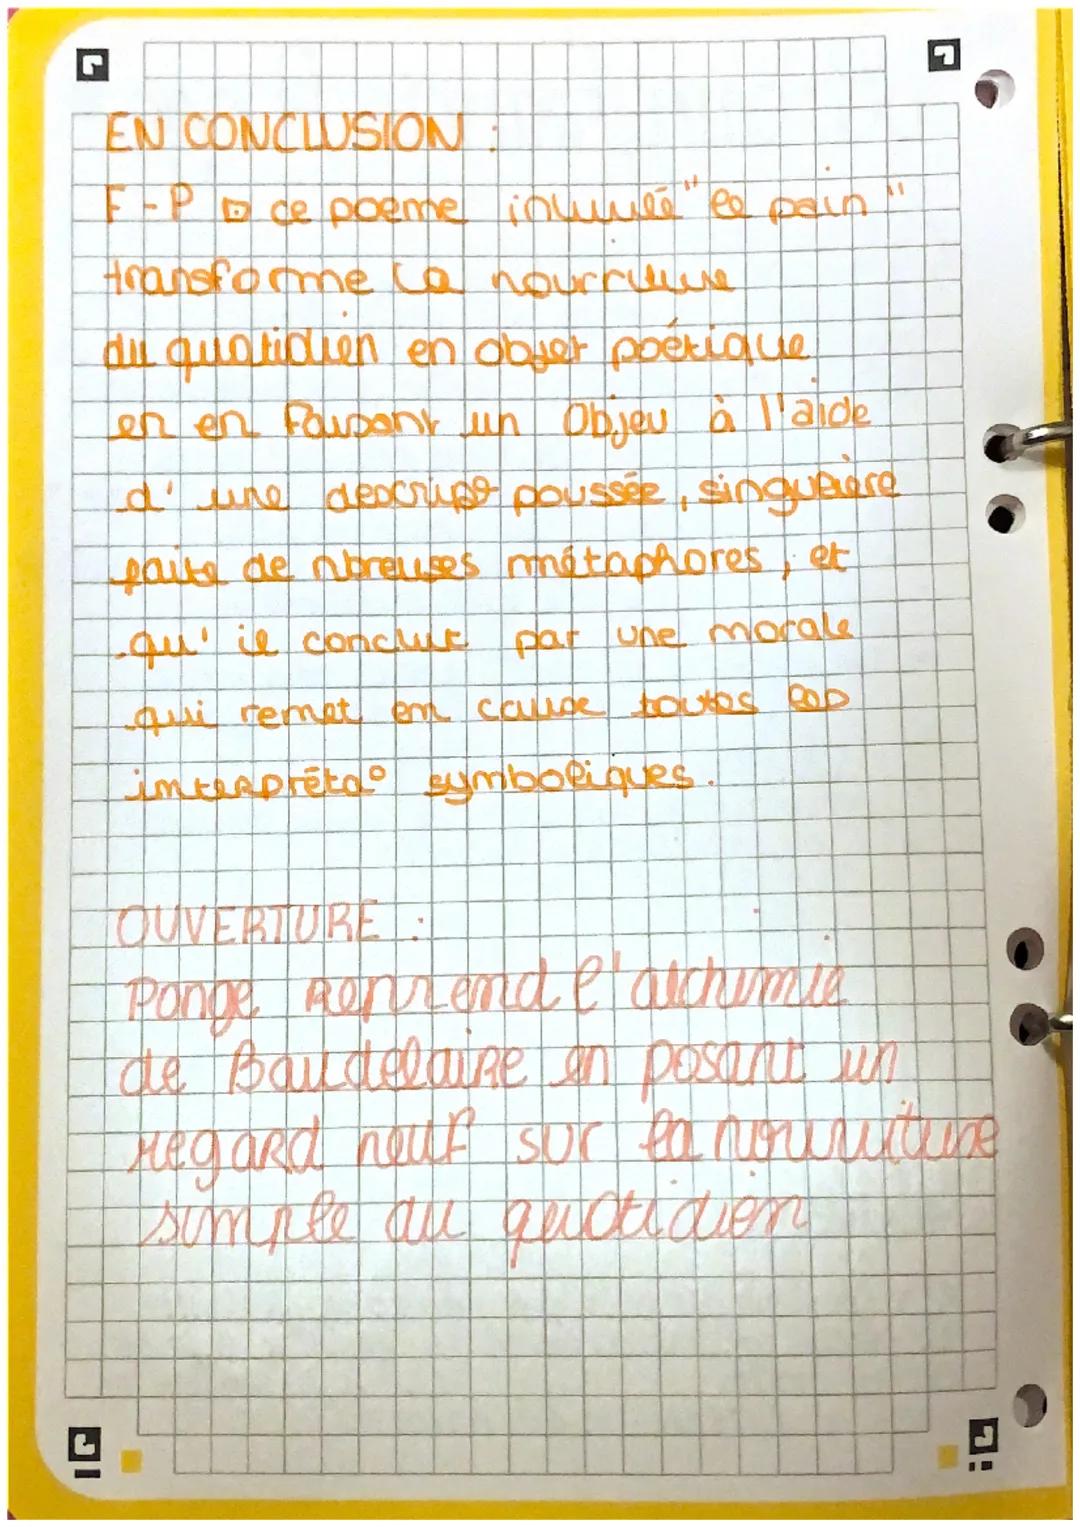 EN CONCLUSION :
F-P ce poeme intitulé "le pain"
transforme la nourriture
du quotidien en objet poétique
en en faisant un Objeu à l'aide
d'une descript° poussée, singulière
faite de nbreuses métaphores, et
qu'il conclut par une morale
qui remet en cause toutes les
interpréta° symboliques.
OUVERTURE :
Ponge reprend l'alchimie
de Baudelaire en posant un
regard neuf sur la nourriture
simple du quotidien